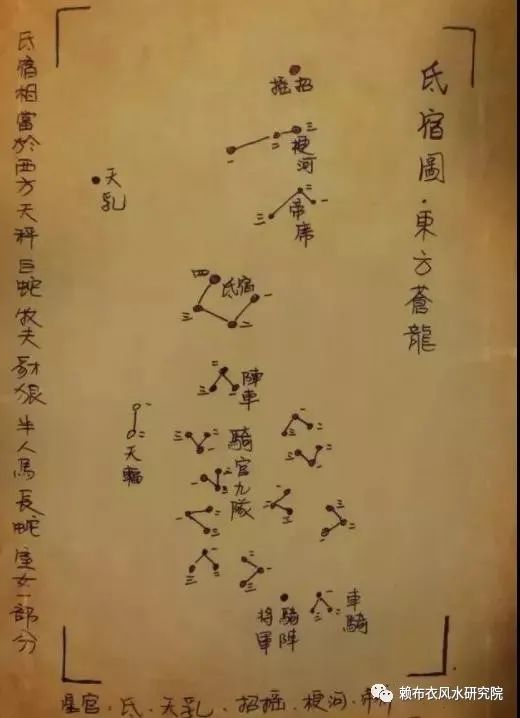 氐宿圖·東方蒼龍
招搖
三
二
一
梗河
天乳
二
一
三
帝席
四
氐宿
一
三
二
陣車
一
二
三
騎官九隊
一
二
天輻
車騎
騎陣將軍
氐宿相當於西方天秤巨蛇牧夫豺狼半人馬長蛇室女一部分
星官:氐、天乳、招搖、梗河、帝席
赖布衣风水研究院